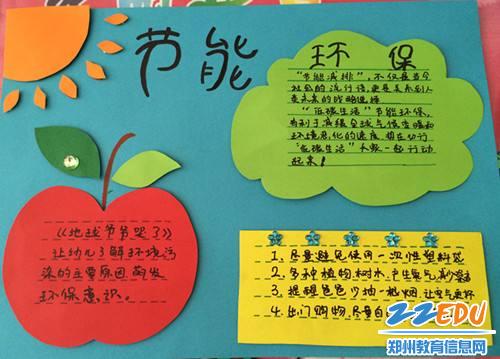 节能
环 保
"节能减排",不仅是当今
社会的流行语,更是关系到人
类未来的战略选择
"低碳生活"节能环保,
有利于减缓全球气候变暖和
环境恶化的速度 势在必行
"低碳生活"大家一起行动
起来!
《地球爷爷哭了》
让幼儿了解环境污
染的主要原因 萌发
环保意识。
1、尽量避免使用一次性塑料袋
2、多种植物、树木,产生氧气,减少
3、提醒爸爸少抽一根烟,让空气
4、出门购物,尽量自
22EDU
郑州教育信息网